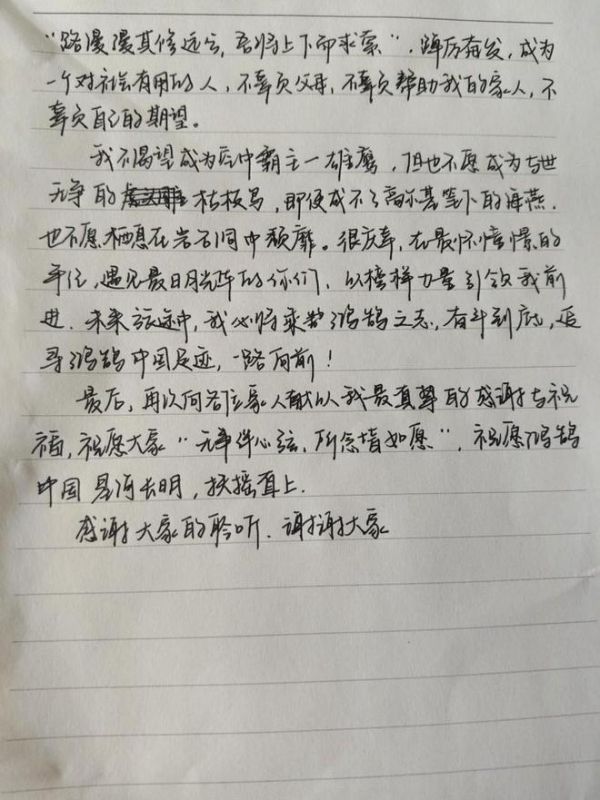 “路漫漫其修远兮，吾将上下而求索”，踔厉奋发，成为
一个对社会有用的人，不辜负父母，不辜负帮助我的家人，不
辜负自己的期望。
我不渴望成为空中霸主一雄鹰，但也不愿成为与世
无争的枯枝鸟，即便成不了高尔基笔下的海燕，
也不愿栖息在岩石洞中颓靡。很庆幸，在最怀憧憬的
年纪，遇见最日月光阵的你们，以榜样力量引领我前
进．未来征途中，我必将秉势鸿鹄之志，奋斗到底，追
寻鸿鹄中国足迹，一路向前！
最后，再次向各位家人献以我最真挚的感谢与祝
福，祝愿大家“无事绊心弦，所念皆如愿”，祝愿鸿鹄
中国星河长明，扶摇直上．
感谢大家的聆听．谢谢大家